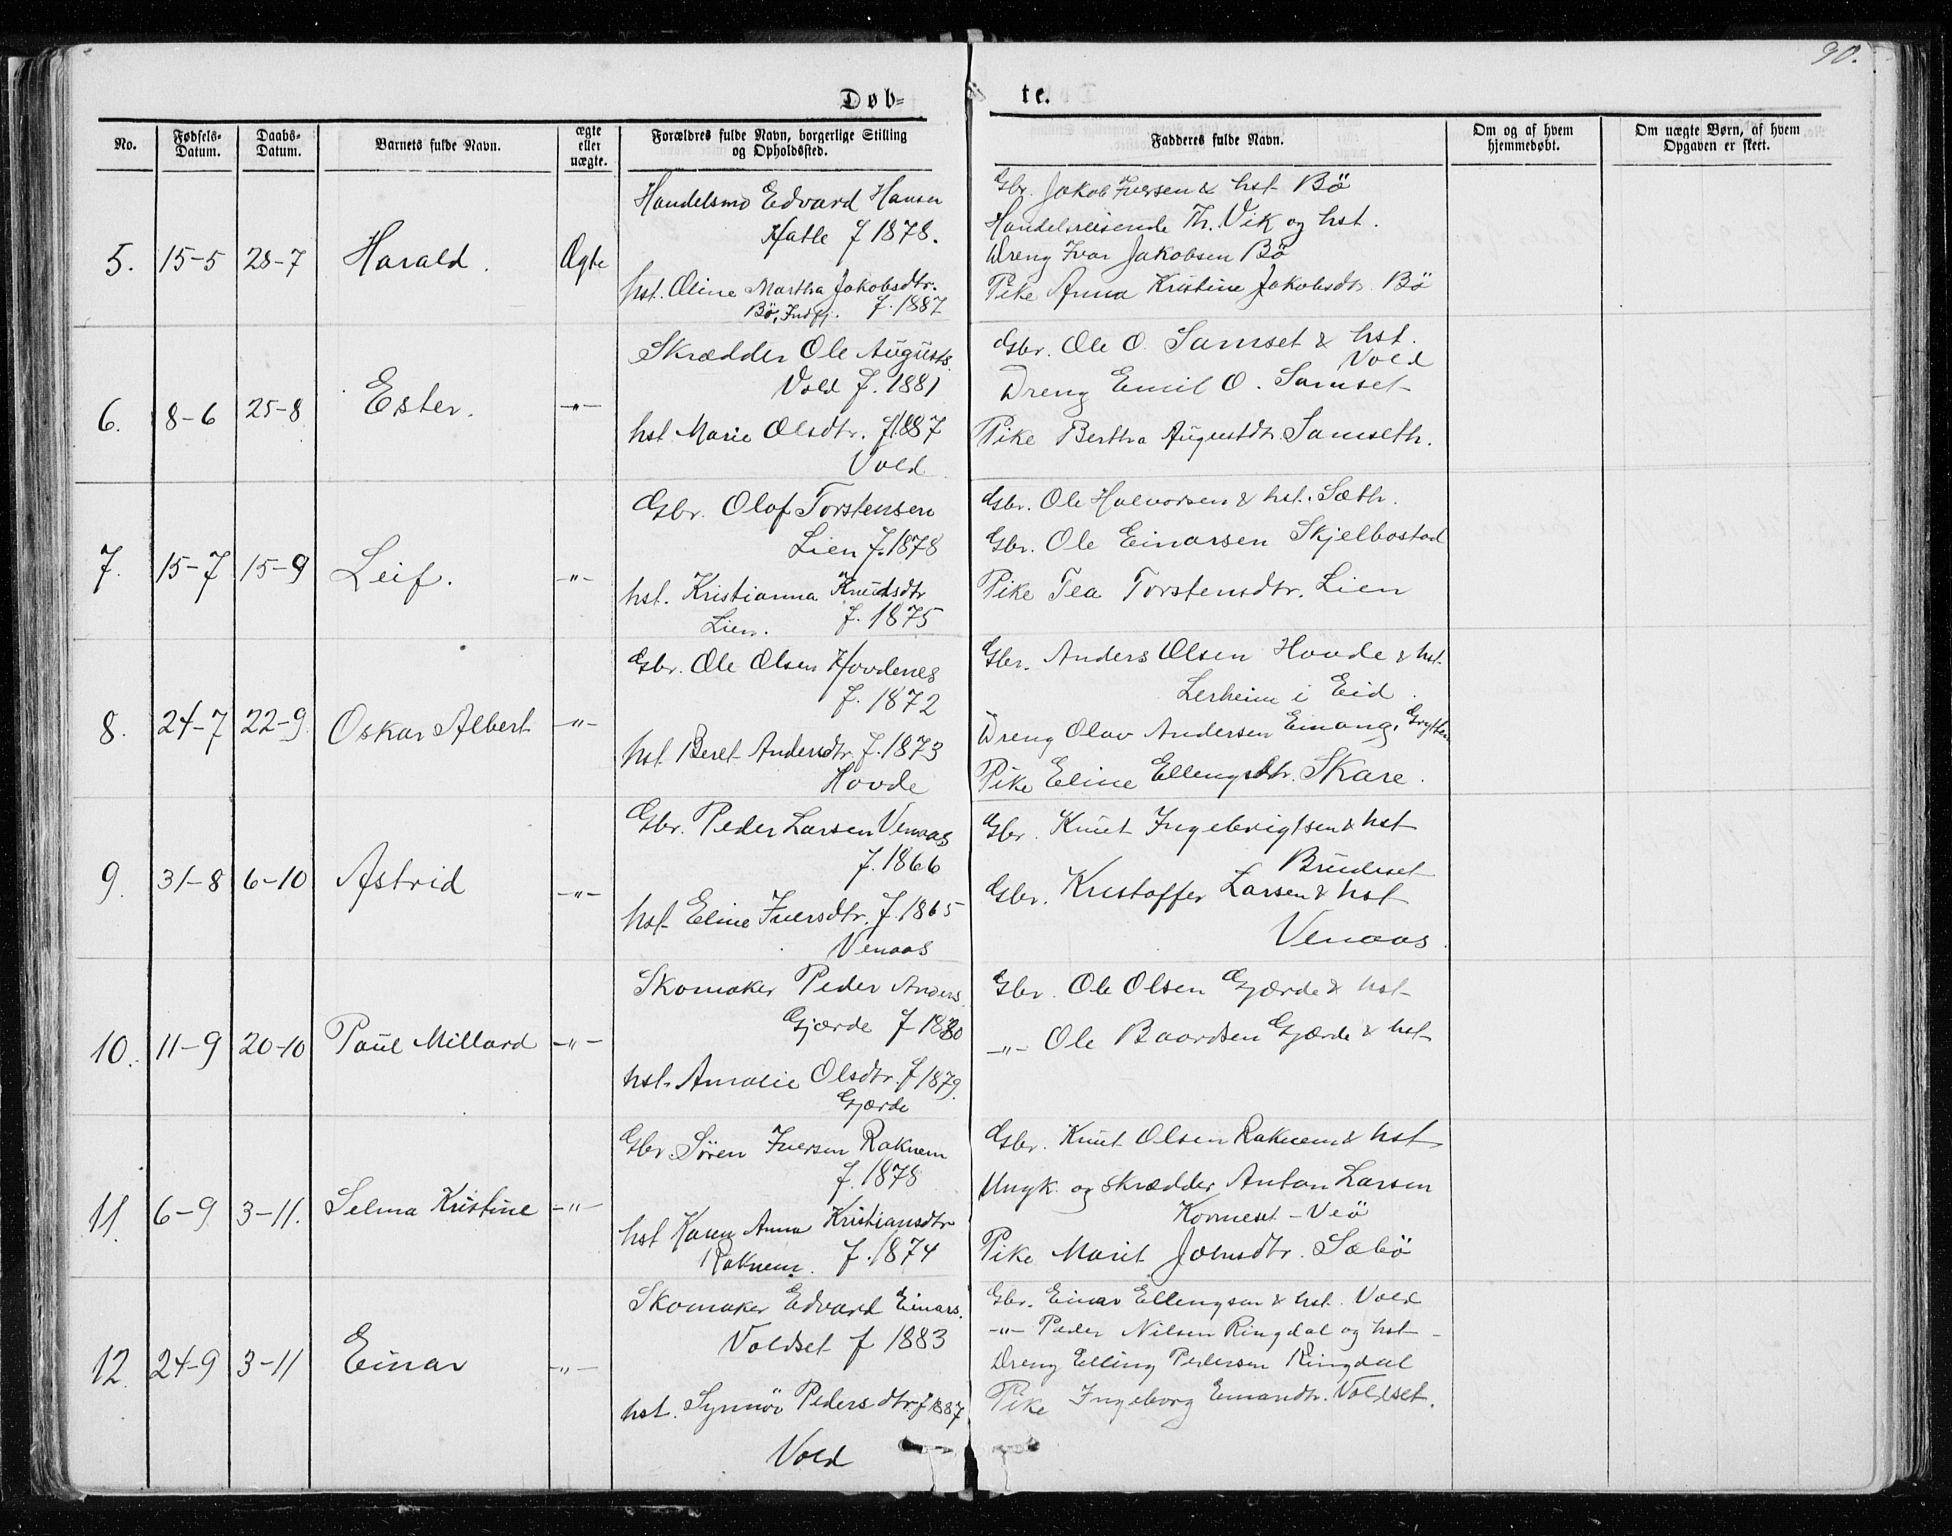 90.
Døb-
te.
No.
Fødsels-
Datum.
Daabs-
Datum.
Barnets fulde Navn.
ægte
eller
uægte.
Forældres fulde Navn, borgerlige Stilling
og Opholdssted.
Fadderes fulde Navn.
Om og af hvem
hjemmedøbt.
Om uægte Børn, af hvem
Opgaven er skeet.
5.
15-5
28-7
Harald.
Ægte
Handelsmd Edvard Hansen
Hatle f 1878.
hst. Oline Martha Jakobsdtr.
Bø, Indfj. f. 1887
Gbr. Jakob Iversen & hst Bø
Handelsreisende Th. Vik og hst.
Dreng Ivar Jakobsen Bø
Pike Anna Kristine Jakobsdtr Bø
6.
8-6
25-8
Ester.
-"-
Skrædder Ole Augusts.
Vold f. 1881
hst Marie Olsdtr. f 1887
Vold
Gbr. Ole O. Samset & hst.
Vold
Dreng Emil O. Samset
Pike Bertha Augustdtr Samseth.
7.
15-7
15-9
Leif.
-"-
Gbr. Olaf Torstensen
Lien f. 1878
hst. Kristianna Knudsdtr
Lien. f. 1875
Gbr. Ole Halvorsen & hst. Sæth.
Gbr. Ole Einarsen Skjelbostad
Pike Tea Torstensdtr. Lien
8.
24-7
22-9
Oskar Albert
-"-
Gbr. Ole Olsen Hovdenes
f. 1872
hst Beret Andersdtr. f. 1873
Hovde
Gbr. Anders Olsen Hovde & hst.
Lerheim i Eid.
Dreng Olav Andersen Einang, Grytten
Pike Eline Ellengsdtr. Skare.
9.
31-8
6-10
Astrid
-"-
Gbr. Peder Larsen Venaas
f. 1866
hst Eline Iversdtr. f. 1865
Venaas
Gbr. Knut Ingebrigtsen & hst
Bruaset
Gbr. Kristoffer Larsen & hst
Venaas.
10.
11-9
20-10
Paul Millard
-"-
Skomaker Peder Anders.
Gjærde f 1880
hst. Amalie Olsdtr. f 1879.
Gjærde
Gbr. Ole Olsen Gjærde & hst
-"- Ole Baardsen Gjærde & hst
11.
6-9
3-11.
Selma Kristine
-"-
Gbr Søren Iversen Raknem
f. 1878
hst Karen Anna Kristiansdtr
Raknem. f. 1874
Gbr. Knut Olsen Raknem & hst
Ungk. og skrædder Anton Larsen
Kormeset - Veø
Pike Marit Johnsdtr. Sæbø
12.
24-9
3-11
Einar
-"-
Skomaker Edvard Einars.
Voldset f 1883
hst. Synnøv Pedersdtr f 1887
Vold
Gbr. Einar Ellengsen & hst. Vold
-"- Peder Nilsen Ringdal og hst -
Dreng Elling Pedersen Ringdal
Pike Ingeborg Einarsdtr. Voldset.